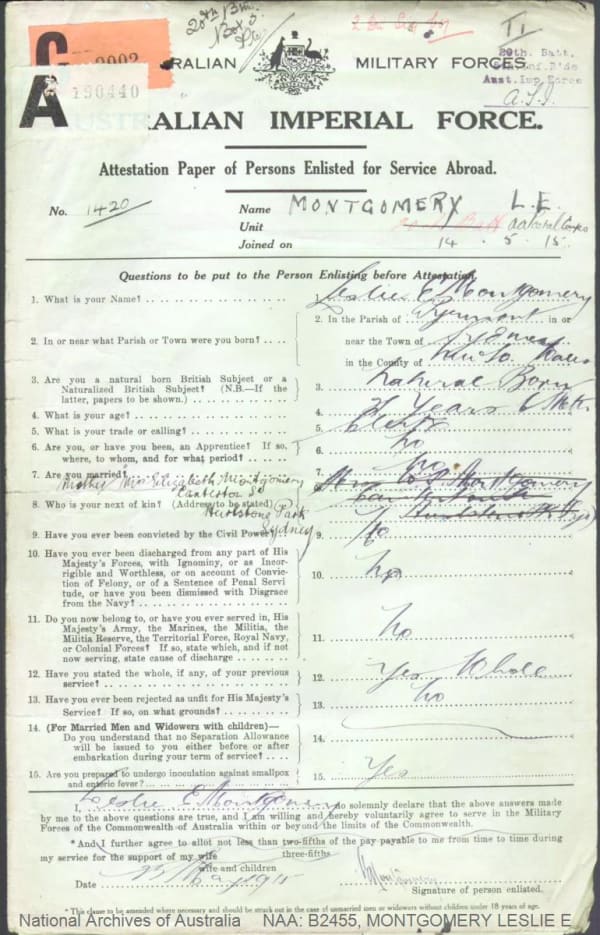 28th Bttn
G
A
190440
AUSTRALIAN MILITARY FORCES.
20th. Batt.
Aust.Imp.Force
A.I.F.
AUSTRALIAN IMPERIAL FORCE.
Attestation Paper of Persons Enlisted for Service Abroad.
No. 1420
Name MONTGOMERY L.E.
Unit
Joined on 14 . 5 . 15.
Questions to be put to the Person Enlisting before Attestation.
1. What is your Name?
1. Leslie E Montgomery
2. In or near what Parish or Town were you born?
2. In the Parish of Pyrmont in or
near the Town of Sydney
in the County of New So. Wales
3. Are you a natural born British Subject or a
Naturalized British Subject? (N.B.—If the
latter, papers to be shown.)
3. Natural Born
4. What is your age?
4. 21 Years 6 Mths
5. What is your trade or calling?
5. Clerk
6. Are you, or have you been, an Apprentice? If so,
where, to whom, and for what period?
6. No
7. Are you married?
7. No
Mother Mrs Elizabeth Montgomery
8. Who is your next of kin? (Address to be stated)
Hurlstone Park
Sydney
8. Mrs Montgomery
9. Have you ever been convicted by the Civil Power?
9. No
10. Have you ever been discharged from any part of His
Majesty's Forces, with Ignominy, or as Incor-
rigible and Worthless, or on account of Convic-
tion of Felony, or of a Sentence of Penal Servi
tude, or have you been dismissed with Disgrace
from the Navy?
10. No
11. Do you now belong to, or have you ever served in, His
Majesty's Army, the Marines, the Militia, the
Militia Reserve, the Territorial Force, Royal Navy,
or Colonial Forces? If so, state which, and if not
now serving, state cause of discharge
11. No
12. Have you stated the whole, if any, of your previous
service?
12. Yes Whole
13. Have you ever been rejected as unfit for His Majesty's
Service? If so, on what grounds?
13. No
14. (For Married Men and Widowers with children)—
Do you understand that no Separation Allowance
will be issued to you either before or after
embarkation during your term of service?
14.
15. Are you prepared to undergo inoculation against smallpox
and enteric fever?
15. Yes
I, Leslie E Montgomery do solemnly declare that the above answers made
by me to the above questions are true, and I am willing and hereby voluntarily agree to serve in the Military
Forces of the Commonwealth of Australia within or beyond the limits of the Commonwealth.
*And I further agree to allot not less than two-fifths of the pay payable to me from time to time during
three-fifths
my service for the support of my wife
wife and children
Date
Signature of person enlisted.
* This clause to be amended where necessary and should be struck out in the case of unmarried men or widowers without children under 18 years of age.
National Archives of Australia NAA: B2455, MONTGOMERY LESLIE E